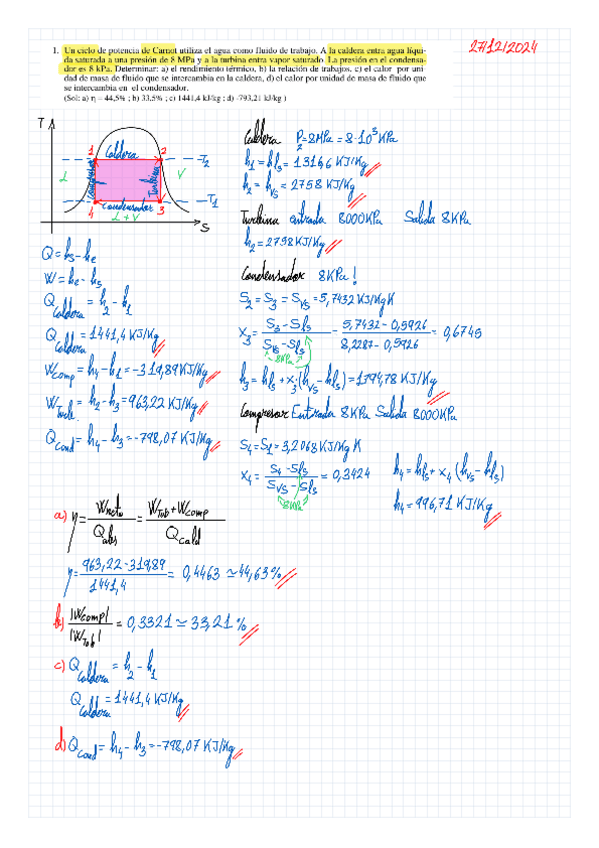 27/12/2024
1. Un ciclo de potencia de Carnot utiliza el agua como fluido de trabajo. A la caldera entra agua líqui-
da saturada a una presión de 8 MPa y a la turbina entra vapor saturado. La presión en el condensa-
dor es 8 kPa. Determinar: a) el rendimiento térmico, b) la relación de trabajos, c) el calor por uni-
dad de masa de fluido que se intercambia en la caldera, d) el calor por unidad de masa de fluido que
se intercambia en el condensador.
(Sol: a) η = 44,5% ; b) 33,5% ; c) 1441,4 kJ/kg ; d) -793,21 kJ/kg )
T
1 Caldera 2 T₂
L Compresor Turbina V
4 Condensador 3 T₁
L+V S
Q = hs - he
W = he - hs
Q Caldera = h₂ - h₁
Q Caldera = 1441,4 KJ/Kg
Wcomp = h₄ - h₁ = -319,89 KJ/Kg
WTurb. = h₂ - h₃ = 963,22 KJ/Kg
QCond = h₄ - h₃ = -798,07 KJ/Kg
Caldera P₂ = 8MPa = 8·10³ KPa
h₁ = hls = 1316,6 KJ/Kg
h₂ = hvs = 2758 KJ/Kg
Turbina entrada 8000KPa Salida 8KPa
h₂ = 2758 KJ/Kg
Condensador 8KPa!
S₂ = S₃ = Svs = 5,7432 KJ/KgK
X₃ = (S₃ - Sls)/(Svs - Sls) = (5,7432 - 0,5926)/(8,2287 - 0,5926) = 0,6745
8KPa
h₃ = hls + x₃(hvs - hls) = 1794,78 KJ/Kg
Compresor Entrada 8KPa Salida 8000KPa
S₄ = S₁ = 3,2068 KJ/Kg K
X₄ = (S₄ - Sls)/(Svs - Sls) = 0,3424
8KPa
h₄ = hls + x₄(hvs - hls)
h₄ = 996,71 KJ/Kg
a) η = Wneto/Qabs = (WTub + Wcomp)/Qcald
η = (963,22 - 319,89)/1441,4 = 0,4463 ≃ 44,63%
b) |Wcomp|/|WTub| = 0,3321 ≃ 33,21%
c) Q Caldera = h₂ - h₁
Q Caldera = 1441,4 KJ/Kg
d) QCond = h₄ - h₃ = -798,07 KJ/Kg